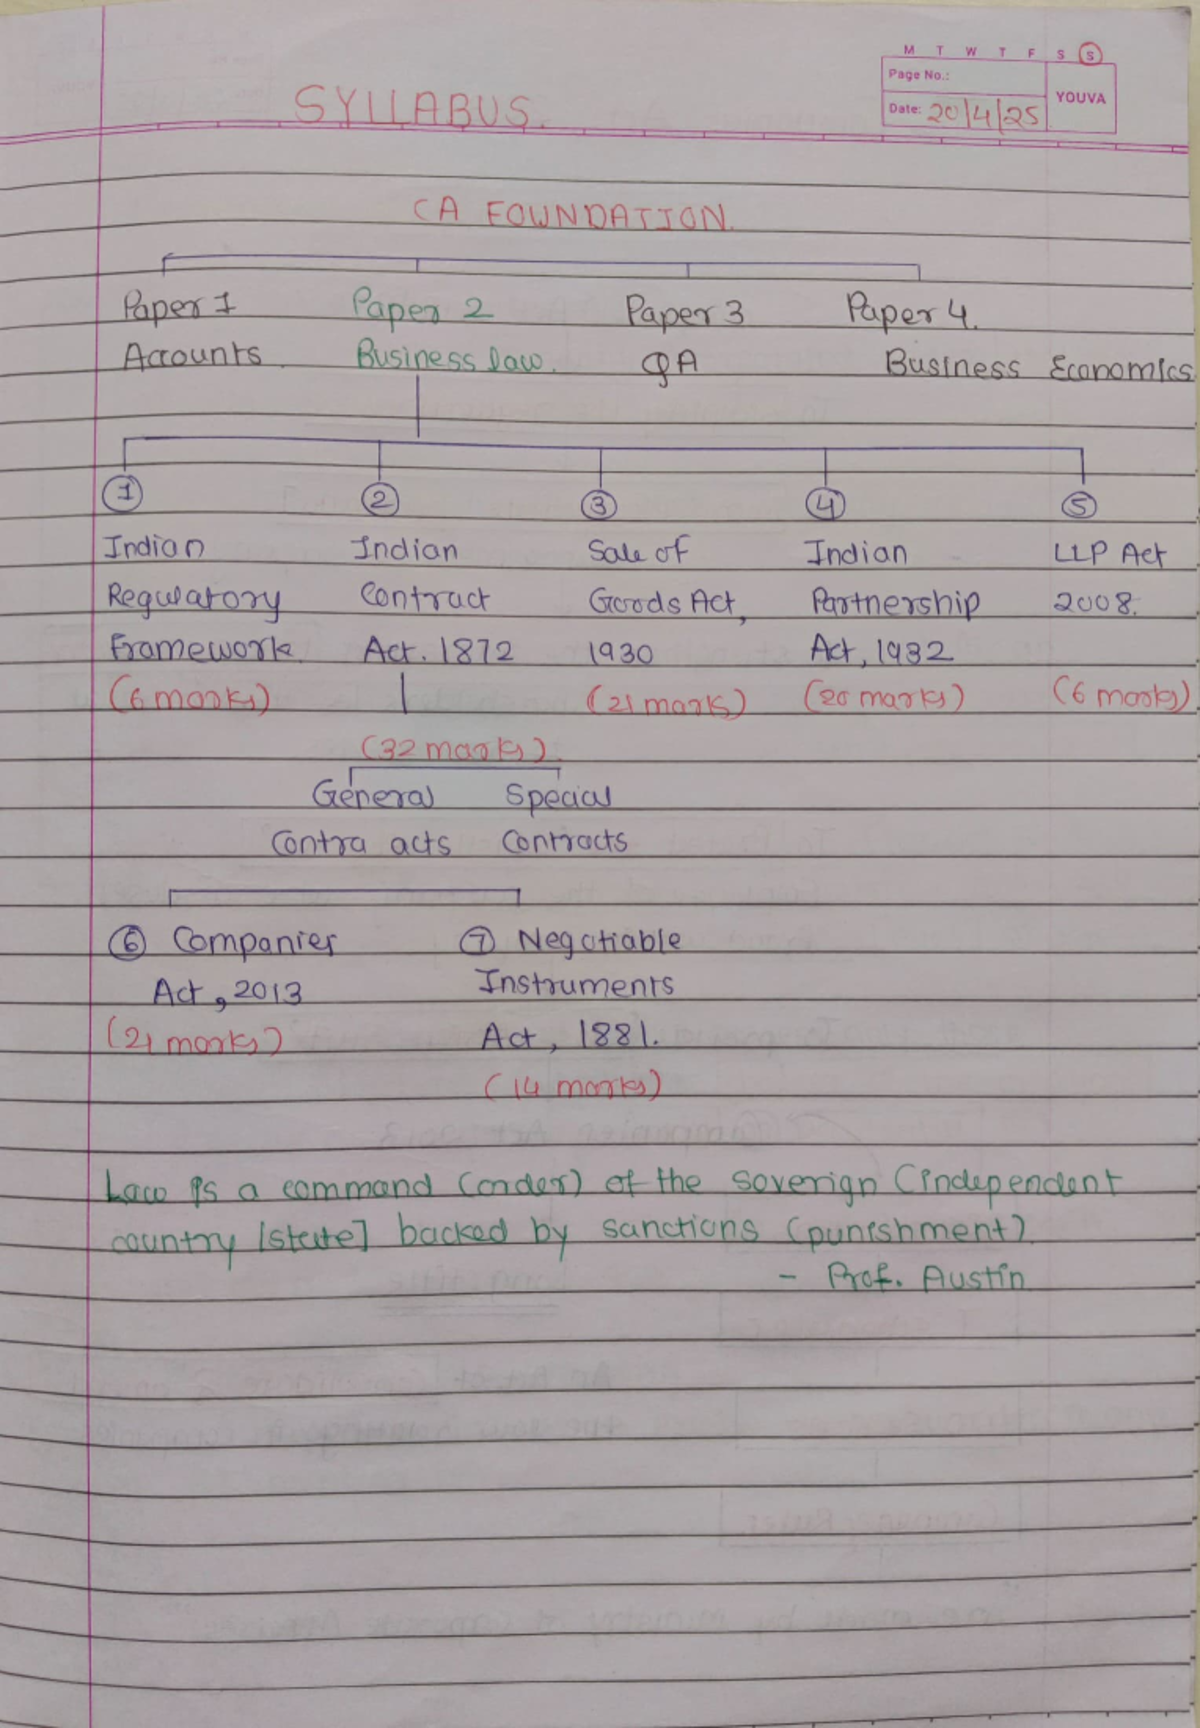 M T W T F S S
Page No.:
YOUVA
Date: 20/4/25
SYLLABUS.
CA FOUNDATION.
Paper 1 Paper 2 Paper 3 Paper 4.
Accounts. Business law. QA Business Economics
1 2 3 4 5
Indian Indian Sale of Indian LLP Act
Regulatory Contract Goods Act, Partnership 2008.
Framework. Act. 1872 1930 Act, 1932
(6 marks) (21 marks) (20 marks) (6 marks)
(32 marks).
General Special
Contra acts Contracts
6 Companier 7 Negotiable
Act, 2013 Instruments
(21 marks) Act, 1881.
(14 marks)
Law is a command (order) of the soverign (independent
country /state] backed by sanctions (punishment).
- Prof. Austin.